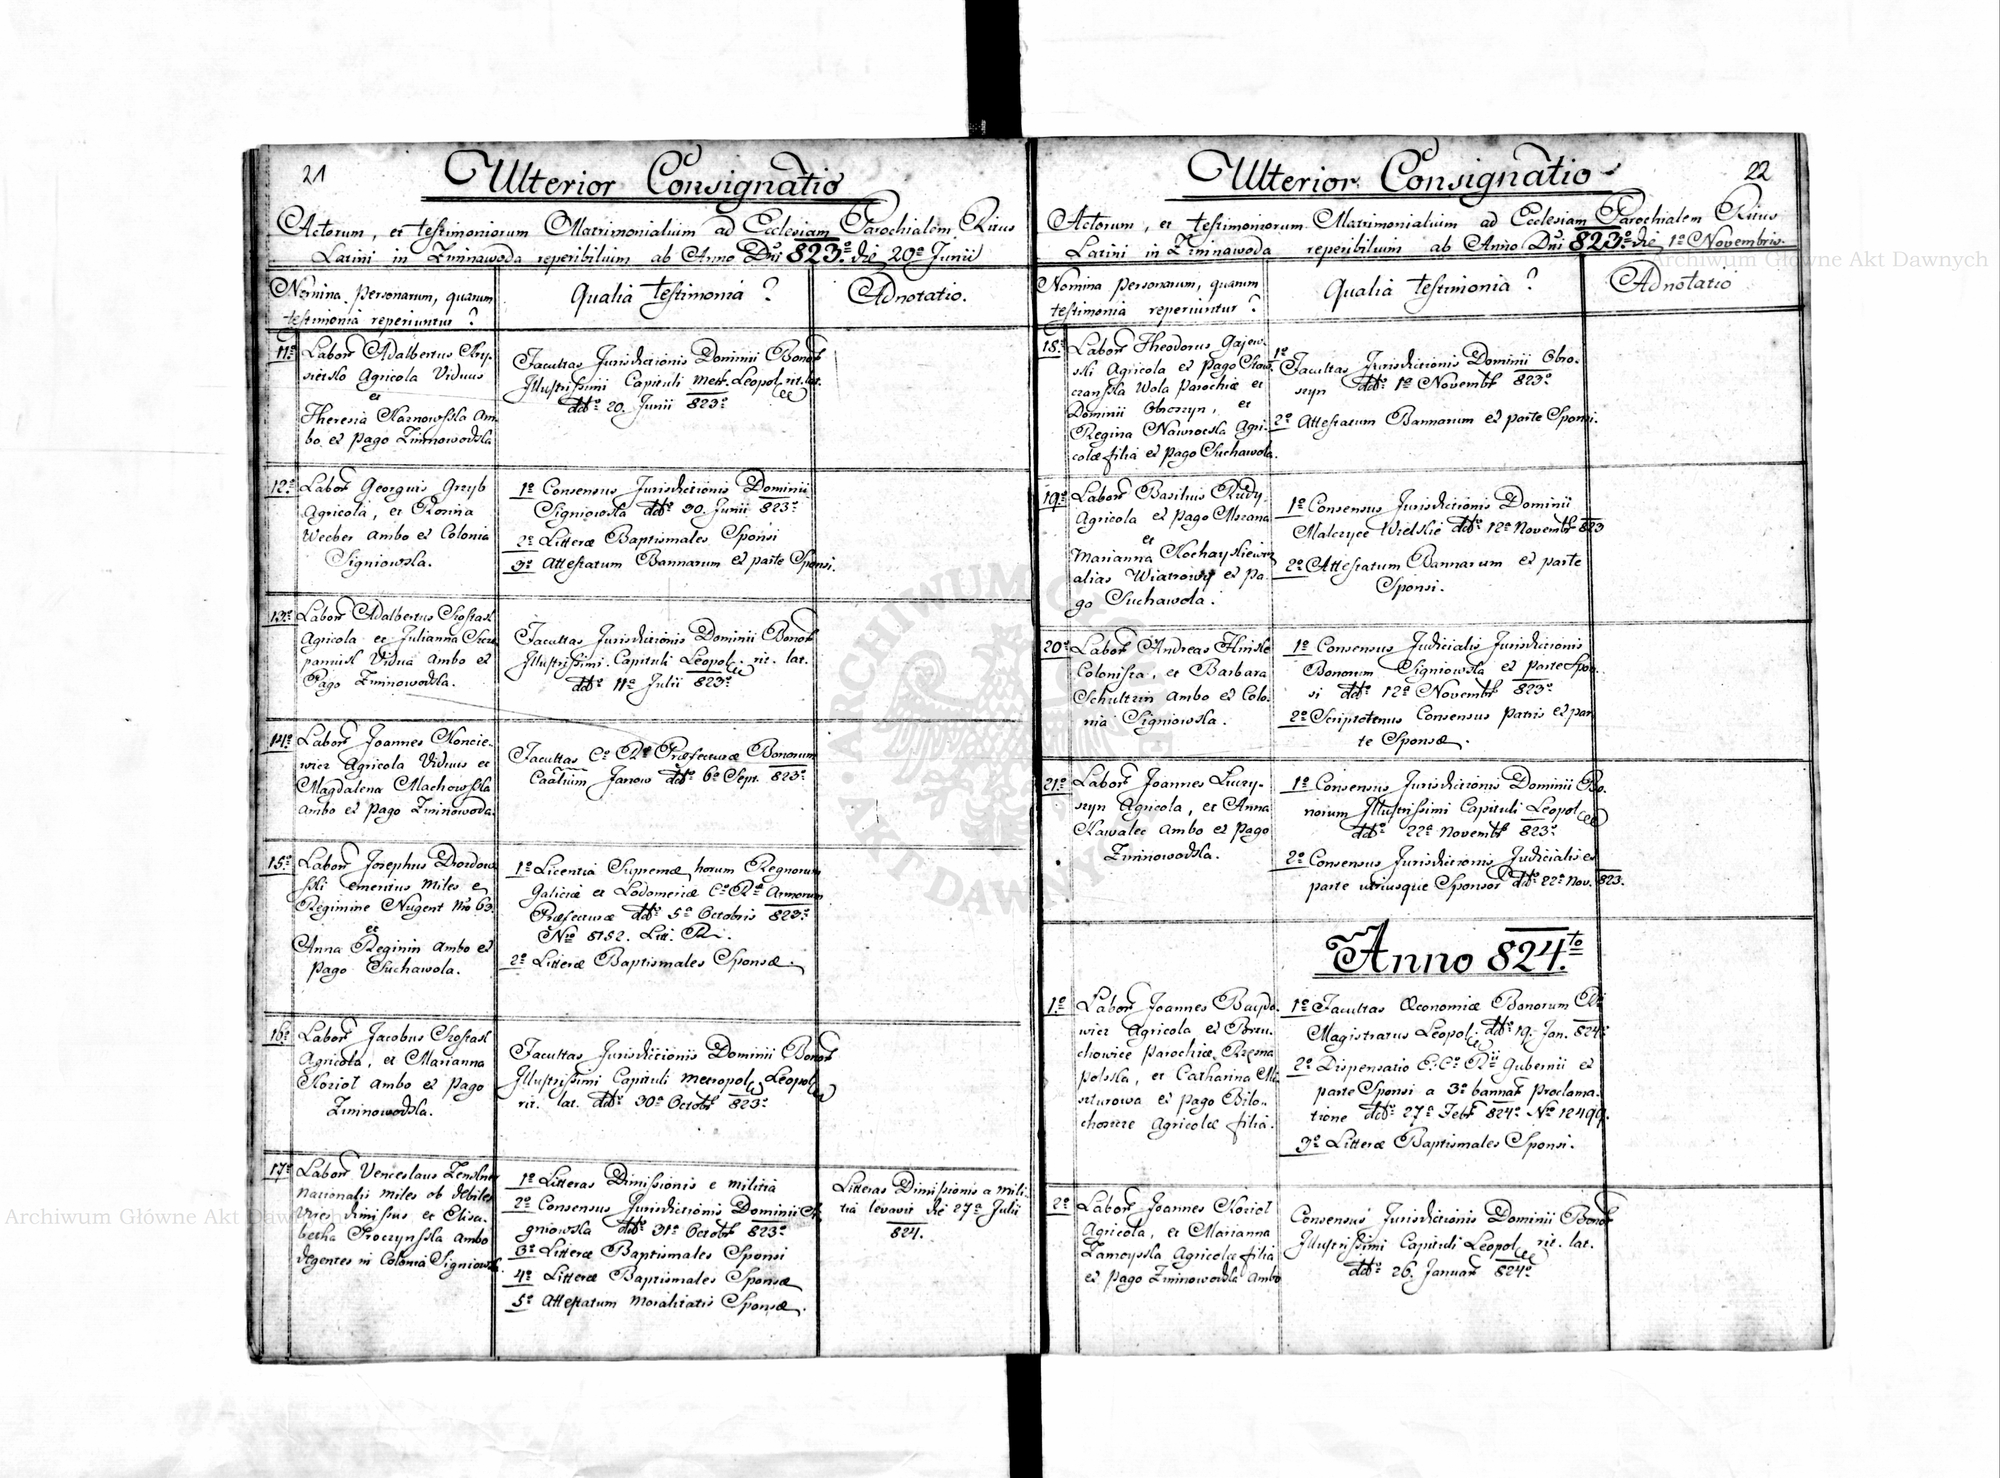 21
Ulterior Consignatio
Actorum, et testimoniorum Matrimonialium ad Ecclesiam Parochialem Ritus
Latini in Zimnawoda reperibilium ab Anno Dni 823º die 20ª Junii
Nomina personarum, quarum
testimonia reperiuntur?
Qualia testimonia?
Adnotatio.
11º
Labor Adalbertus
Agricola Viduus
et
Theresia Karnowska am-
bo, ex pago Zimnowodska
Facultas Jurisdictionis Dominii Bonor
Illustrissimi Capituli Metr. Leopol. rit. lat.
ddtº 20. Junii 823º
12º
Labor Georgius Grzyb
Agricola, et Rosina
Weeber ambo ex Colonia
Signiowska.
1º Consensus Jurisdictionis Dominii
Signiowska ddtº 30. Junii 823º
2º Litteræ Baptismales Sponsi
3º Attestatum Bannarum ex parte Sponsi.
13º
Labor Adalbertus Szostak
Agricola et Julianna
Vidua ambo ex
Pago Zimnowodska.
Facultas Jurisdictionis Dominii Bonor
Illustrissimi Capituli Leopol. rit. lat.
ddtº 11ª Julii 823º
14º
Labor Joannes Koncie-
wicz Agricola Viduus et
Magdalena Machowska
ambo ex pago Zimnowoda.
Facultas Cº Rº Præfecturæ Bonorum
Caalium Janow ddtº 6º Sept. 823º
15º
Labor Josephus
emeritus Miles e
Regimine Nugent Nro 63.
et
Anna Reginin ambo ex
pago Suchawola.
1º Licentia Supremæ horum Regnorum
Galiciæ et Lodomeriæ Cº Rº Armorum
Præfecturæ ddtº 5ª Octobris 823º
Nro 8152. Litt. R.
2º Litteræ Baptismales Sponsæ.
16º
Labor Jacobus Szostak
Agricola, et Marianna
Koziol ambo ex pago
Zimnowodska.
Facultas Jurisdictionis Dominii Bonor
Illustrissimi Capituli Metropol. Leopol.
rit. lat. ddtº 30ª Octobr 823º
17º
Labor Venceslaus
nationalis miles ob debiles
vires dimissus et Elisa-
betha Proczynska ambo
degentes in Colonia Signiowka.
1º Litteras Dimissionis e militia
2º Consensus Jurisdictionis Dominii Si-
gniowska ddtº 31ª Octobr 823º
3º Litteræ Baptismales Sponsi
4º Litteræ Baptismales Sponsæ
5º Attestatum Moralitatis Sponsæ.
Litteras Dimissionis a mili-
tia levavit die 27ª Julii
824.
22
Ulterior Consignatio
Actorum, et testimoniorum Matrimonialium ad Ecclesiam Parochialem Ritus
Latini in Zimnawoda reperibilium ab Anno Dni 823º die 1ª Novembris.
Nomina personarum, quarum
testimonia reperiuntur?
Qualia testimonia?
Adnotatio
18º
Labor Theodorus Gajew-
ski Agricola ex pago
Wola Parochiæ et
Dominii Obroszyn, et
Regina Nawrocska Agri-
colæ filia ex pago Suchawola.
1º
Facultas Jurisdictionis Dominii Obro-
szyn ddtº 1ª Novembr 823º
2º Attestatum Bannarum ex parte Sponsi.
19º
Labor Basilius Rudy
Agricola ex pago Mszana
et
Marianna
alias ex pa-
go Suchawola.
1º Consensus Jurisdictionis Dominii
Malczyce Wielkie ddtº 12ª Novembr 823
2º Attestatum Bannarum ex parte
Sponsi.
20º
Labor Andreas
Colonista, et Barbara
Schultzin ambo ex Colo-
nia Signiowka.
1º Consensus Judicialis Jurisdictionis
Bonorum Signiowka ex parte Spon-
si ddtº 12ª Novembr 823º
2º Scriptotenus Consensus patris ex par
te Sponsæ.
21º
Labor Joannes
Agricola, et Anna
Kawalec ambo ex pago
Zimnowodska.
1º Consensus Jurisdictionis Dominii Bo-
norum Illustrissimi Capituli Leopol.
ddtº 22ª Novembr 823º
2º Consensus Jurisdictionis Judicialis ex
parte utriusque Sponsor ddtº 22ª Nov. 823.
Anno 824.to
1º
Labor Joannes
Agricola ex Brzu-
chowice parochiæ Rzęsna
polska, et Catharina
ex pago Bilo-
horszcze Agricolæ filia.
1º Facultas Œconomiæ Bonorum
Magistratus Leopol. ddtº 19. Jan. 824º
2º Dispensatio E. Cº Rii Gubernii ex
parte Sponsi a 3ª bannar Proclama-
tione ddtº 27ª Febr 824º Nro 12499.
3º Litteræ Baptismales Sponsi.
2º
Labor Joannes Koziol
Agricola, et Marianna
Zamoyska Agricolæ filia
ex pago Zimnowodska ambo
Consensus Jurisdictionis Dominii Bonor
Illustrissimi Capituli Leopol. rit. lat.
ddtº 26. Januar 824º
Archiwum Główne Akt Dawnych
Archiwum Główne Akt Dawnych
ARCHIWUM GŁÓWNE AKT DAWNYCH